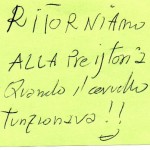 RITORNIAMO
ALLA Preistoria
Quando il cervello
funzionava!!